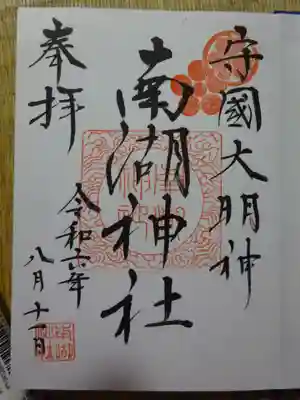 守國大明神
南湖神社
奉拝
令和六年
八月十一日